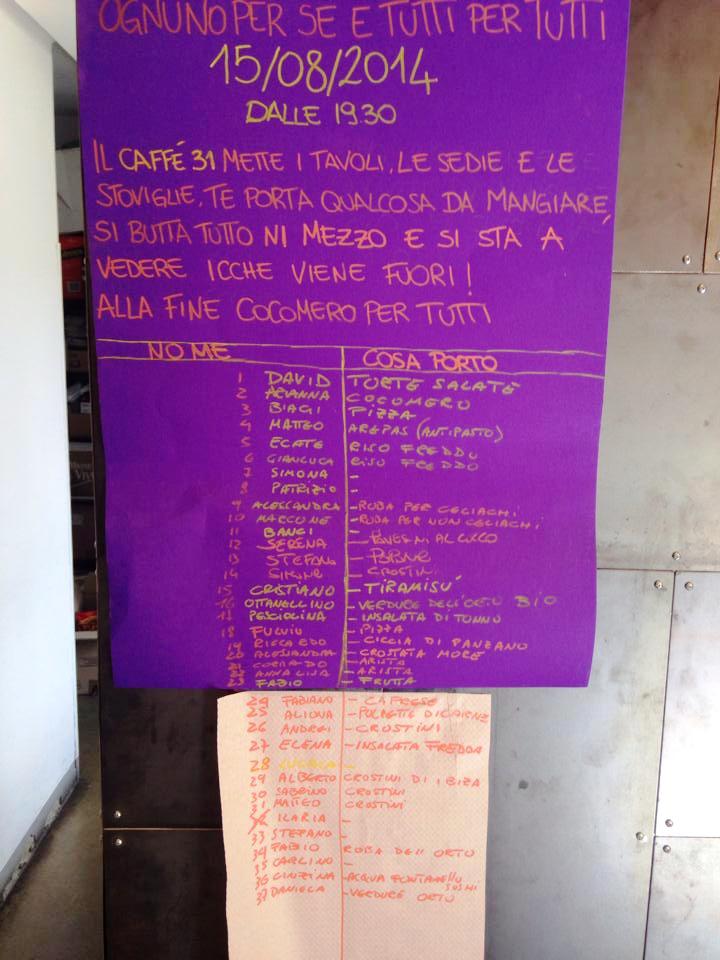 OGNUNO PER SE E TUTTI PER TUTTI
15/08/2014
DALLE 19.30
IL CAFFÉ 31 METTE I TAVOLI, LE SEDIE E LE
STOVIGLIE, TE PORTA QUALCOSA DA MANGIARE,
SI BUTTA TUTTO NI MEZZO E SI STA A
VEDERE ICCHE VIENE FUORI!
ALLA FINE COCOMERO PER TUTTI
NOME COSA PORTO
1 DAVID TORTE SALATE
2 ARIANNA COCOMERO
3 BIAGI PIZZA
4 MATTEO AREPAS (ANTIPASTO)
5 ECATE RISO FREDDO
6 GIANLUCA RISO FREDDO
7 SIMONA -
8 PATRIZIO -
9 ALESSANDRA - ROBA PER CELIACHI
10 MARCONE - ROBA PER NON CELIACHI
11 BANCI -
12 SERENA -
13 STEFONO -
14 SIMONE - CROSTINI
15 CRISTIANO - TIRAMISU'
16 OTTANELLINO - VERDURE DELL'ORTO BIO
17 PESCIOLINA - INSALATA DI TONNO
18 FULVIO - PIZZA
19 RICCARDO - CICCIA DI PANZANO
20 ALESSANDRA - CROSTATA MORE
21 CORRADO - ARISTA
22 ANNALISA - ARISTA
23 FABIO - FRUTTA
24 FABIANO - CAPRESE
25 ALIONA - POLPETTE DI CARNE
26 ANDREI - CROSTINI
27 ELENA - INSALATA FREDDA
28
29 ALBERTO CROSTINI DI IBIZA
30 SABRINO CROSTINI
31 MATTEO CROSTINI
ILARIA -
33 STEFANO -
34 FABIO ROBA DELL ORTO
35 CARLINO -
36 CINZINA - ACQUA FONTANELLO
SUSHI
37 DANIELA - VERDURE ORTO